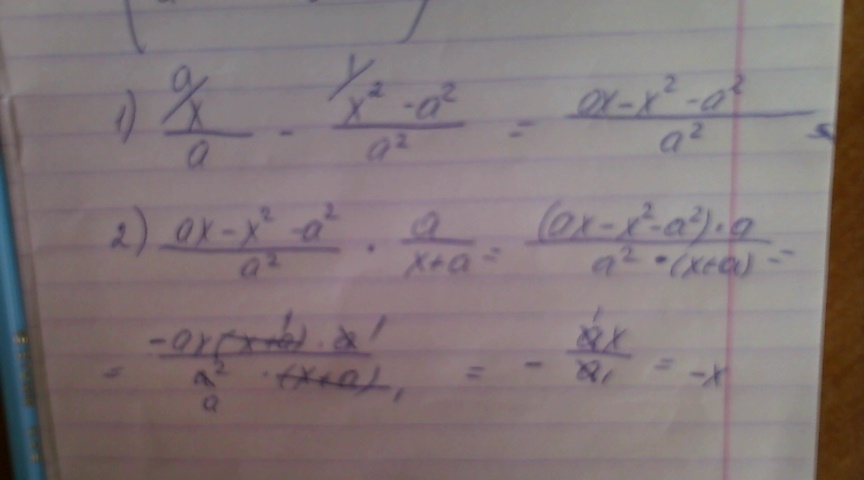 1) a/ x/a - 1/ (x² - a²)/a² = (ax - x² - a²)/a² =
2) (ax - x² - a²)/a² · a/(x+a) = ((ax - x² - a²) · a)/(a² · (x+a)) =
= (-ax(x+a) · a)/(a² · (x+a)) = - ax/a = -x